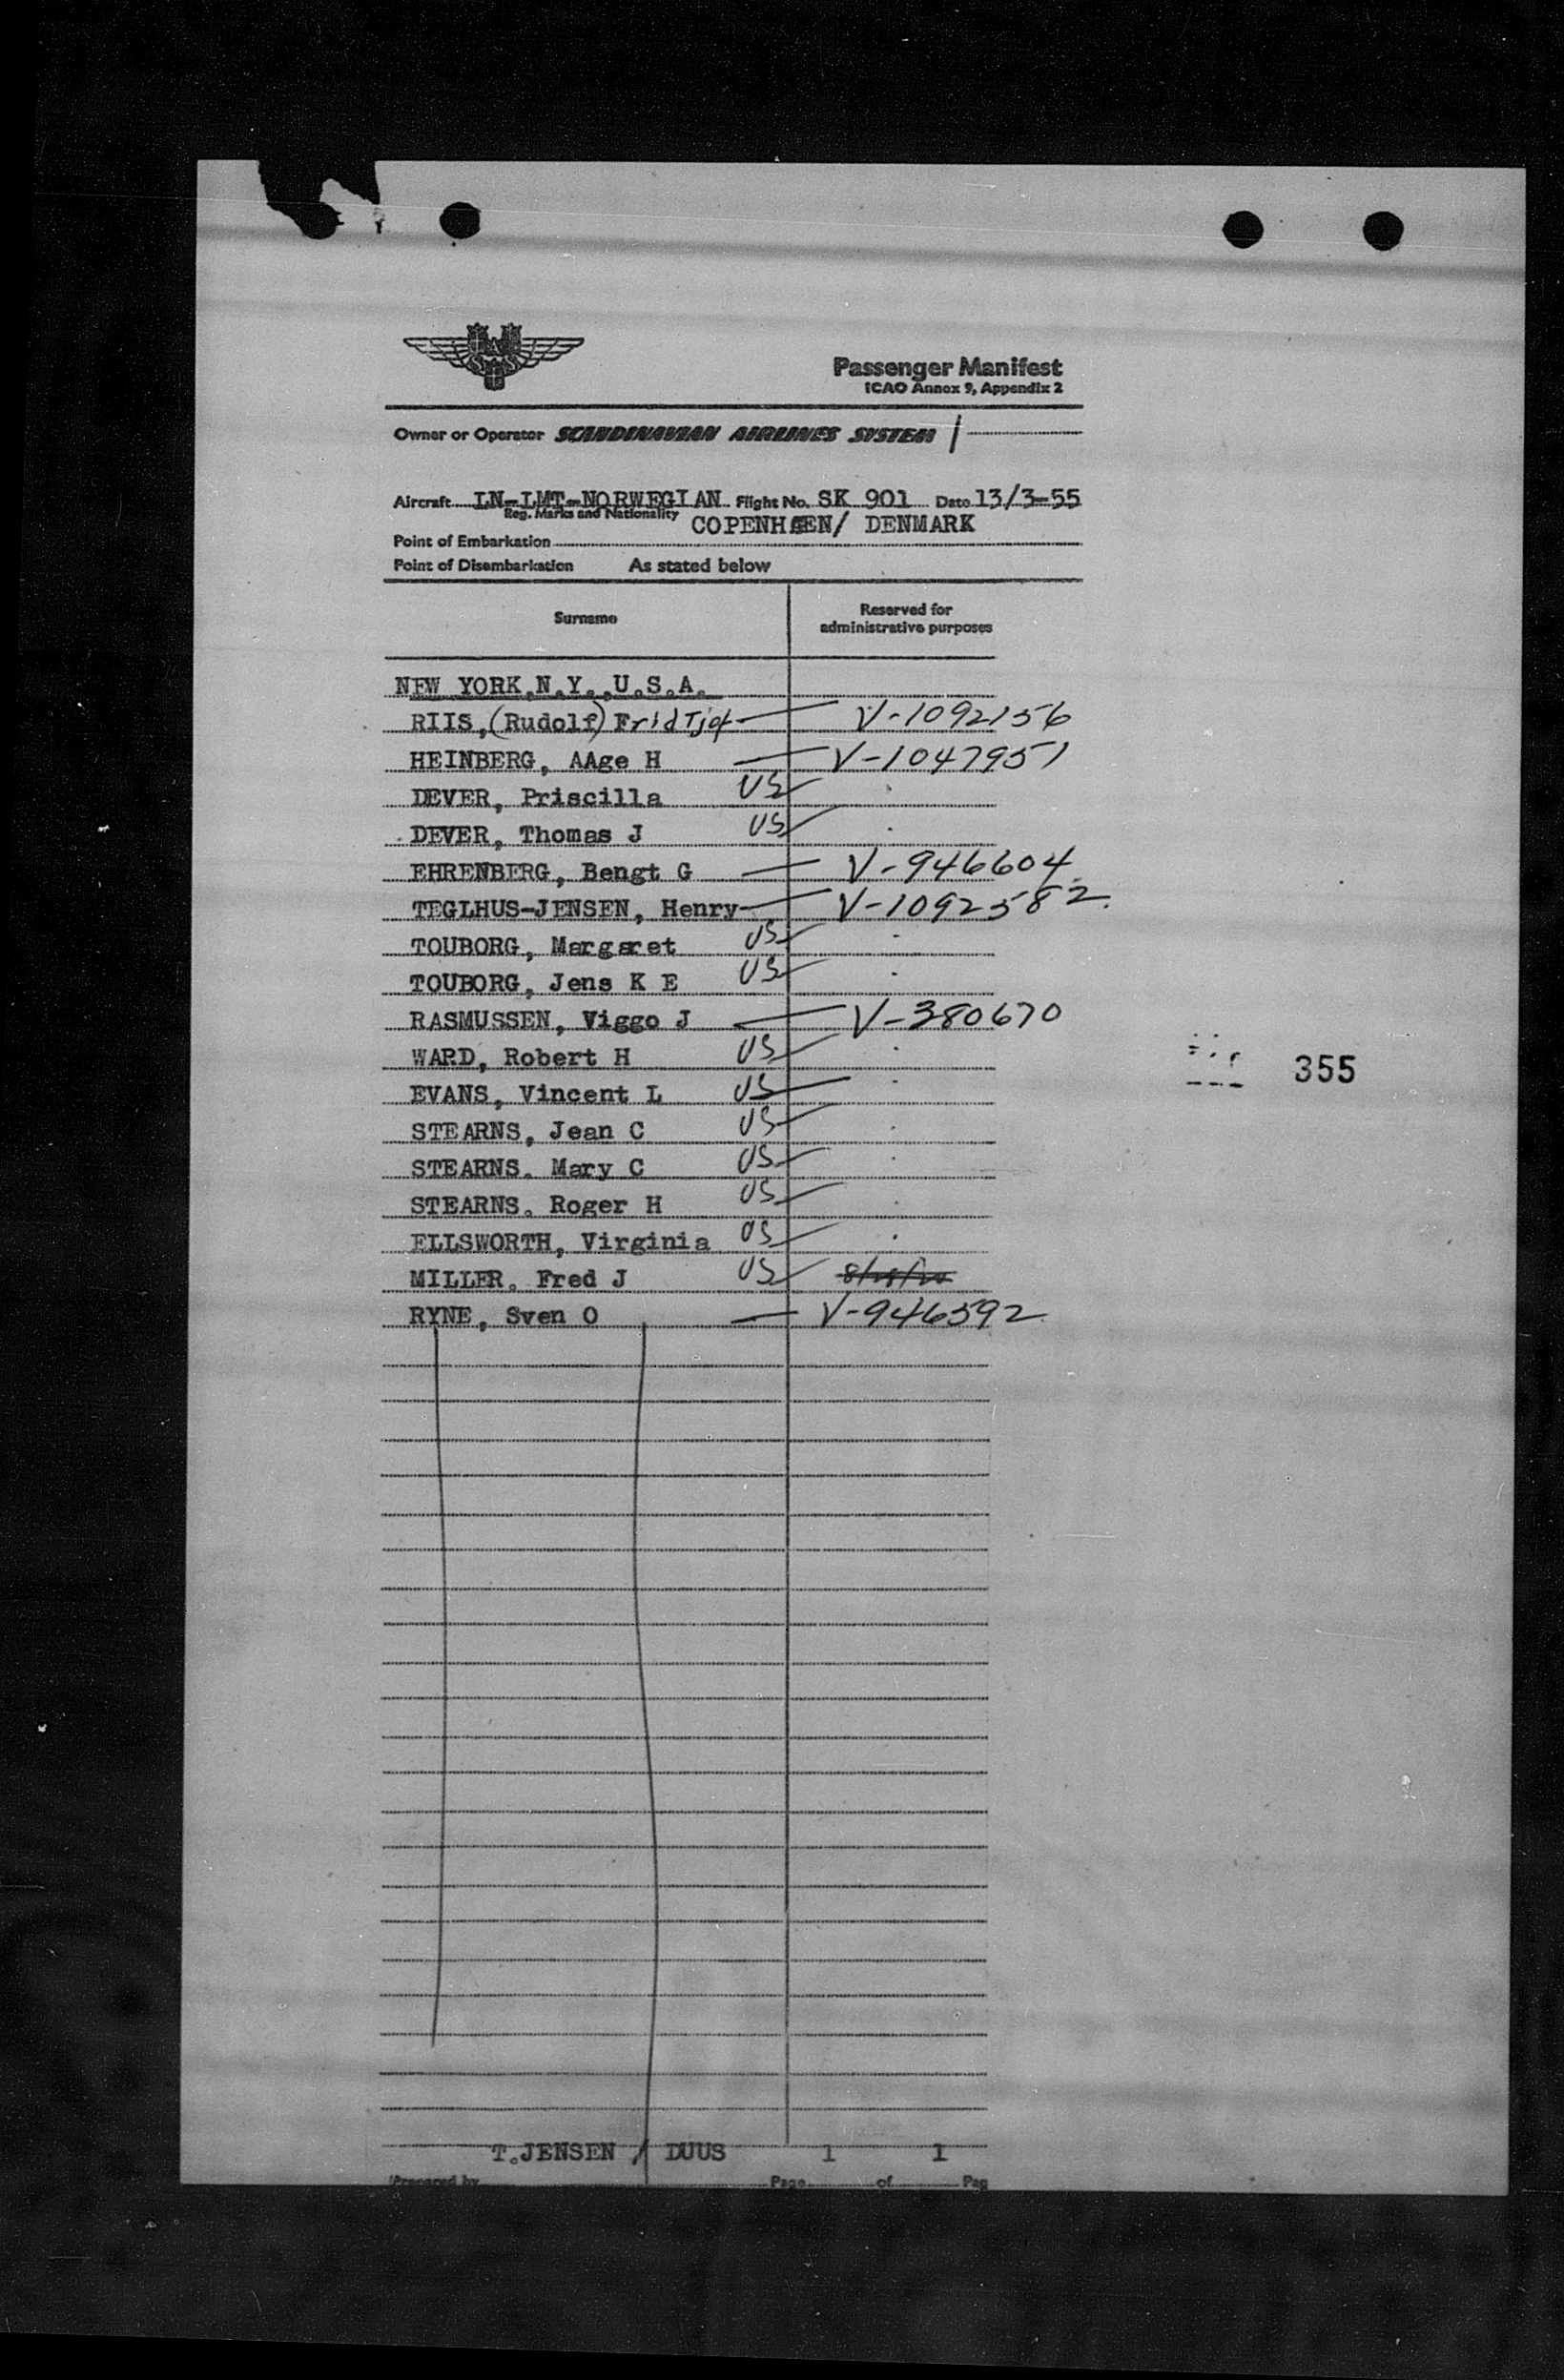 Passenger Manifest
ICAO Annex 9, Appendix 2
Owner or Operator SCANDINAVIAN AIRLINES SYSTEM
Aircraft LN-LMT-NORWEGIAN Flight No. SK 901 Date 13/3-55
Reg. Marks and Nationality
COPENHGEN/ DENMARK
Point of Embarkation
Point of Disembarkation As stated below
Surname Reserved for administrative purposes
NEW YORK,N.Y.,U.S.A.
RIIS,(Rudolf) FridTjof V-1092156
HEINBERG, AAge H V-1047951
DEVER, Priscilla US
DEVER, Thomas J US
EHRENBERG, Bengt G V-946604
TEGLHUS-JENSEN, Henry V-1092582
TOUBORG, Margaret US
TOUBORG, Jens K E US
RASMUSSEN, Viggo J V-380670
WARD, Robert H US
355
EVANS, Vincent L US
STEARNS, Jean C US
STEARNS. Mary C US
STEARNS. Roger H US
ELLSWORTH, Virginia US
MILLER. Fred J US
RYNE, Sven O V-946592
T.JENSEN / DUUS 1 1
Prepared by Page of Pag